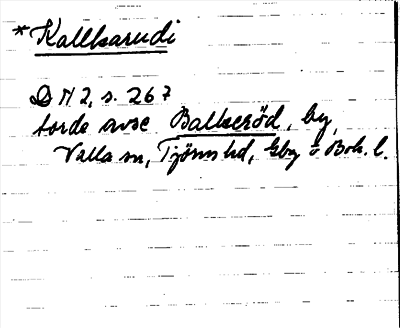 *Kallkarudi
DN 2, s. 267
torde avse Balkeröd, by,
Valla sn, Tjörns hd, Gbg o Boh. l.